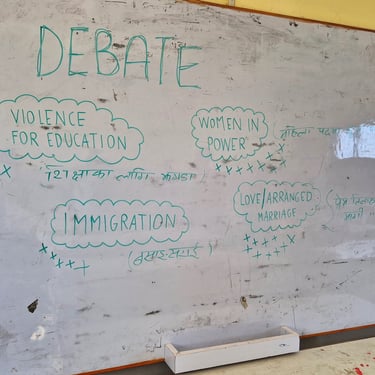 DEBATE
VIOLENCE
FOR EDUCATION
शिक्षाका लागि झगडा
WOMEN IN
POWER
महिला
IMMIGRATION
(बसाई-सराई)
LOVE/ARRANGED
MARRIAGE
प्रेम